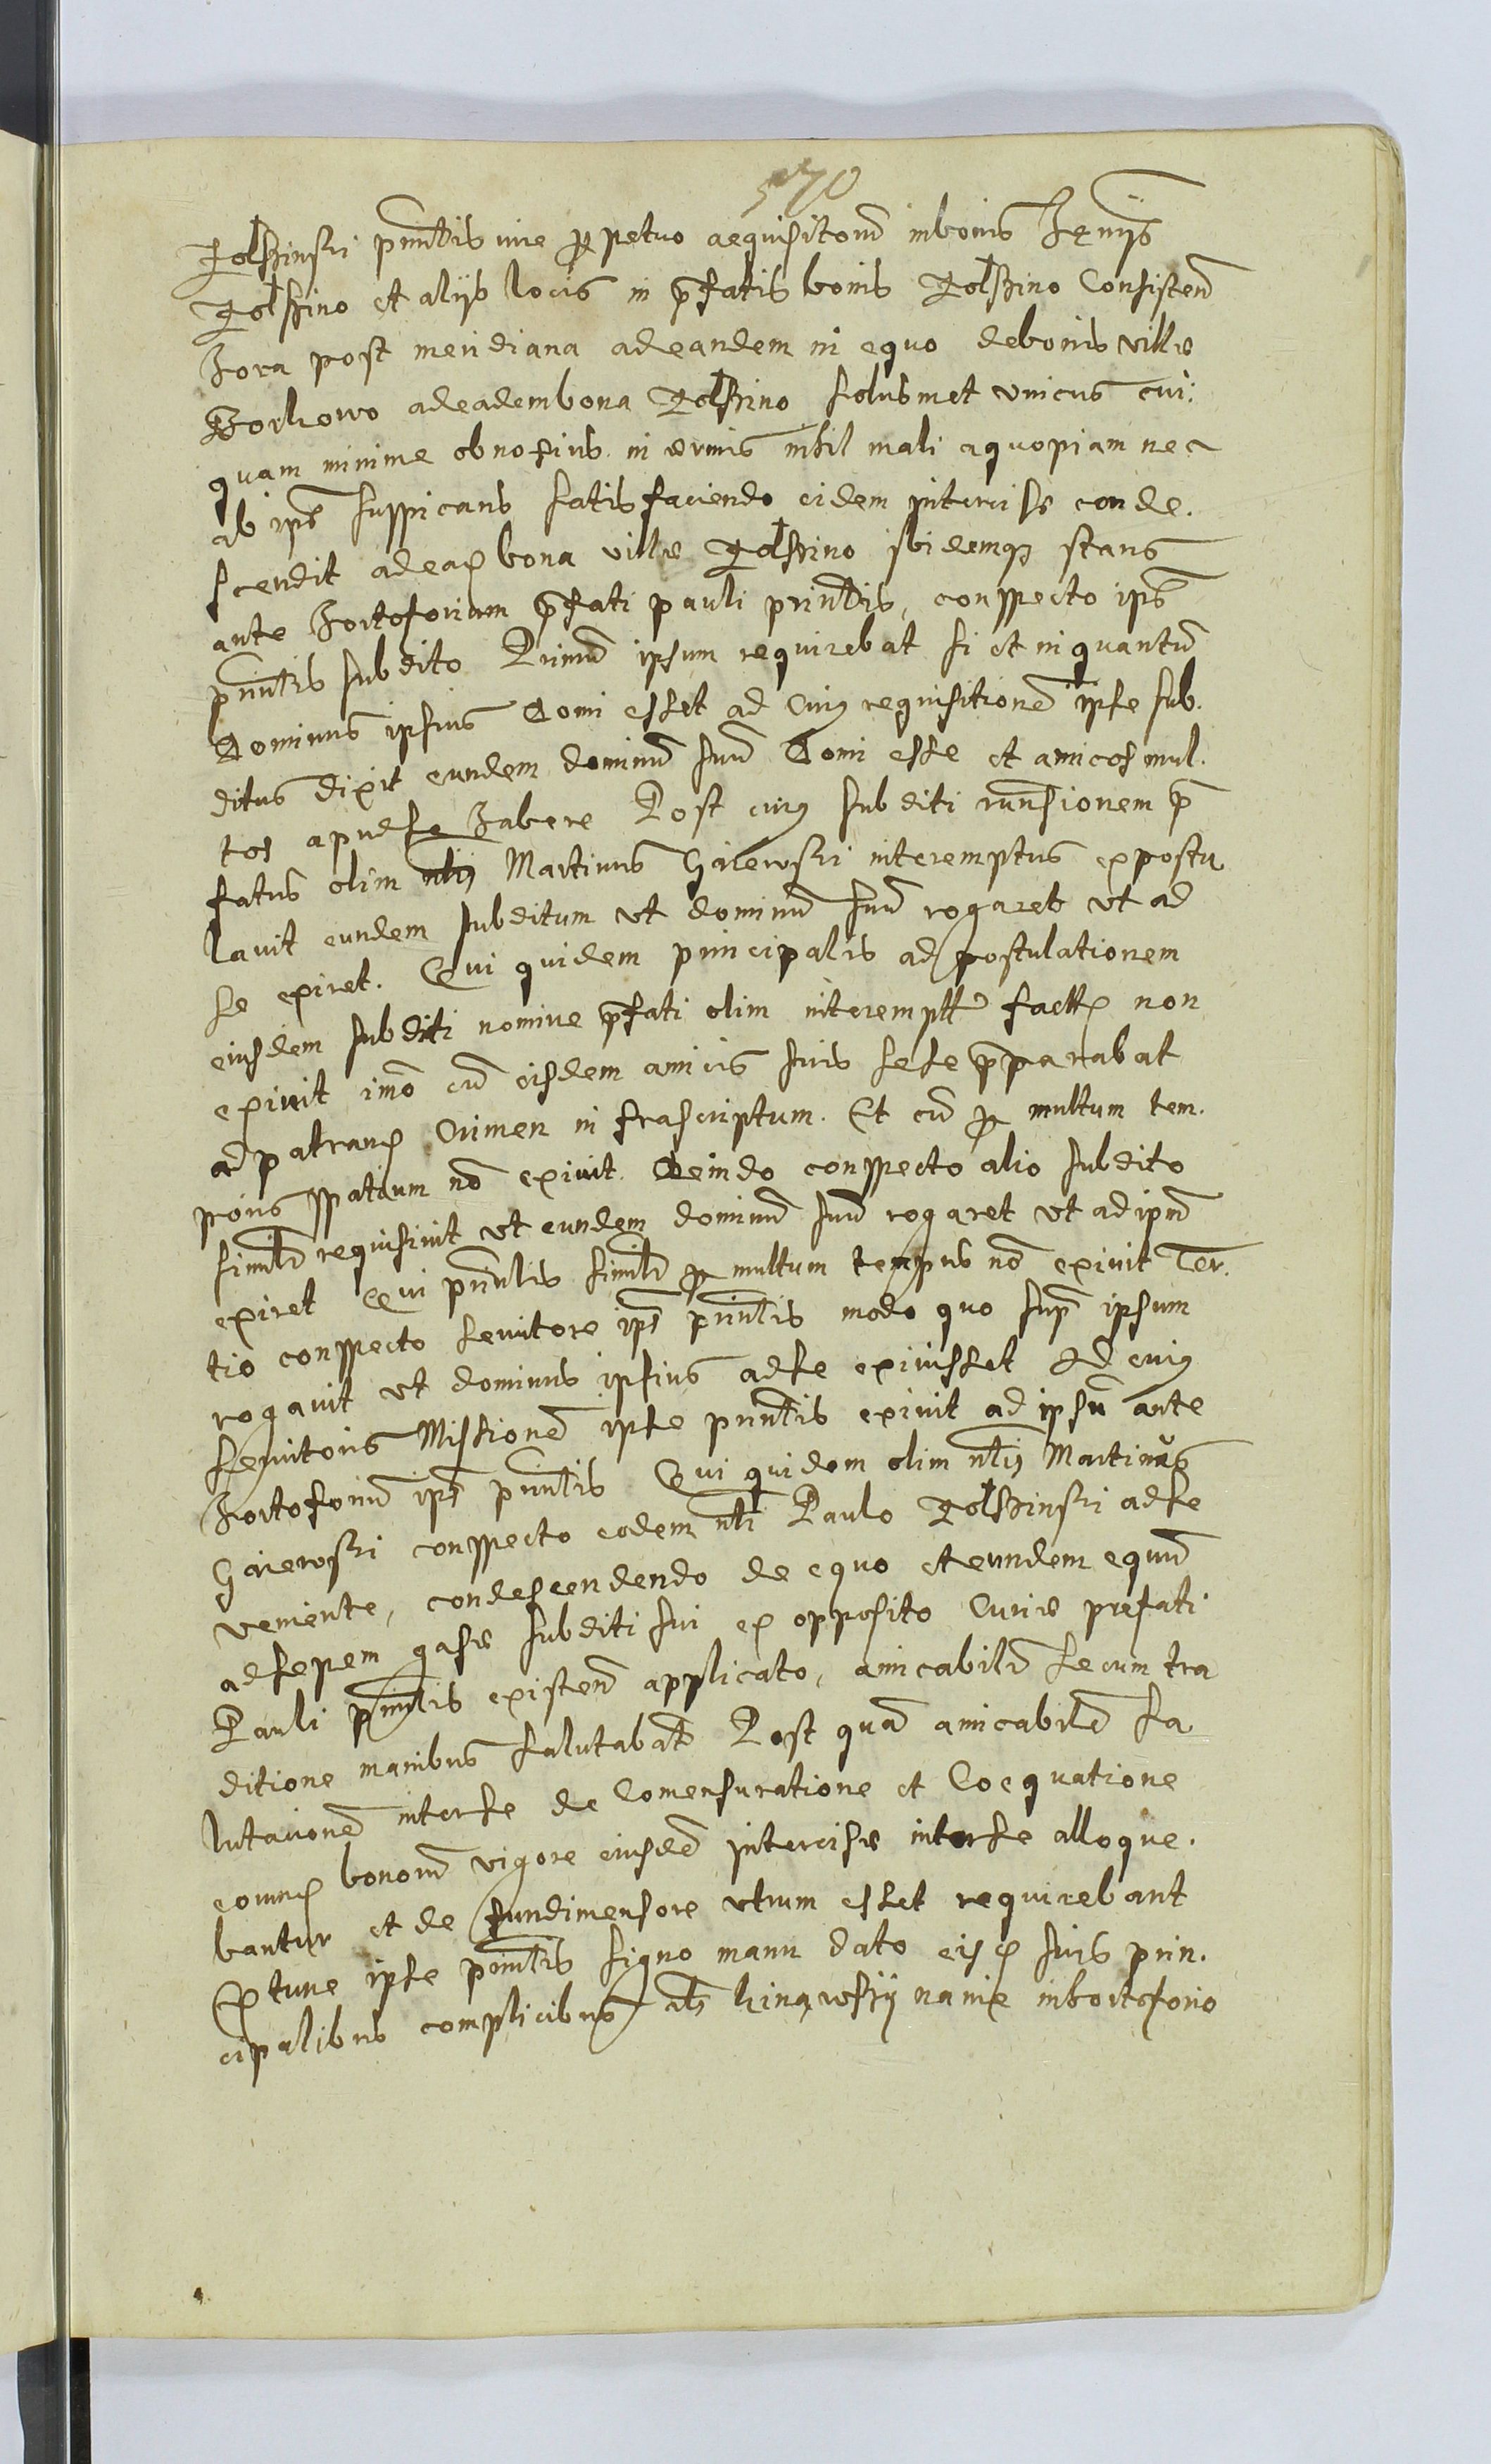 570
Rolbinski prin͠lis iure ꝑpetuo acquisitorũ in bonis
Rolbino et alijs locis in p̃fatis bonis Rolbino Consisteñ
Hora post meridiana ad eandem in equo de bonis villæ
Borkowo ad eadem bona Rolbino solusmet vnicus cui:
quam minime obnoxius inermis nihil mali a quopiam nec
ab ip̃o suspicans satisfaciendo eidem intercisæ conde.
scendit ad eaꝗ bona villæ Rolbino ibidemqꝫ stans
ante Hortoforium p̃fati pauli prin͠lis, conspecto ip̃ius
prin͠lis subdito Primũ ipsum requirebat si et in quantũ
Dominus ipsius Domi esset ad cuiꝰ requisitionẽ ipse sub.
ditus dixit eundem dominũ suũ Domi esse et amicos mul.
tos apud se Habere Post cuiꝰ subditi rñsionem p̃
fatus olim nłis Martinus Gaiewski interemptus expostu
lavit eundem subditum vt dominũ suũ rogaret vt ad
se exiret. Qui quidem principalis ad postulationem
eiusdem subditi nomine p̃fati olim interempti factꝗ non
exiuit imo cũ eisdem amicis suis sese p̃parabat
ad patranꝗ Crimen infrascriptum. Et cũ ꝑ multum tem.
poris spatium nõ exiuit. Deindo conspecto alio subdito
similr̃ requisiuit vt eundem dominũ suũ rogaret vt ad ipm̃
exiret Qui prin͠lis similr̃ ꝑ multum tempus nõ exiuit Ter.
tio conspecto seruitore ip̃ius prin͠lis modo quo sup̃ ipsum
rogauit vt dominus ipsius ad se exiuisset Ad cuiꝰ
seruitoris Missionẽ ipse prin͠lis exiuit ad ipsũ ante
Hortoforiũ ip̃ius prin͠lis Qui quidem olim nłis Martinus
Gaiewski conspecto eodem nłi Paulo Rolbinski ad se
veniente, condescendendo de equo et eundem equũ
ad sepem gasæ subditi sui ex opposito Curiæ prefati
Pauli prin͠lis existeñ applicato, amicabilr̃ secum tra
ditione manibus salutabat Post quã amicabilẽ sa
lutationẽ inter se de Comensuratione et Coequatione
eorunꝗ bonorũ vigore eiusdẽ intercisæ inter se alloque.
bantur et de fundimensore vtrum esset requirebant
Ex tunc ipse prin͠lis signo manu dato eisꝗ suis prin.
cipalibus complicibus in hortoforio